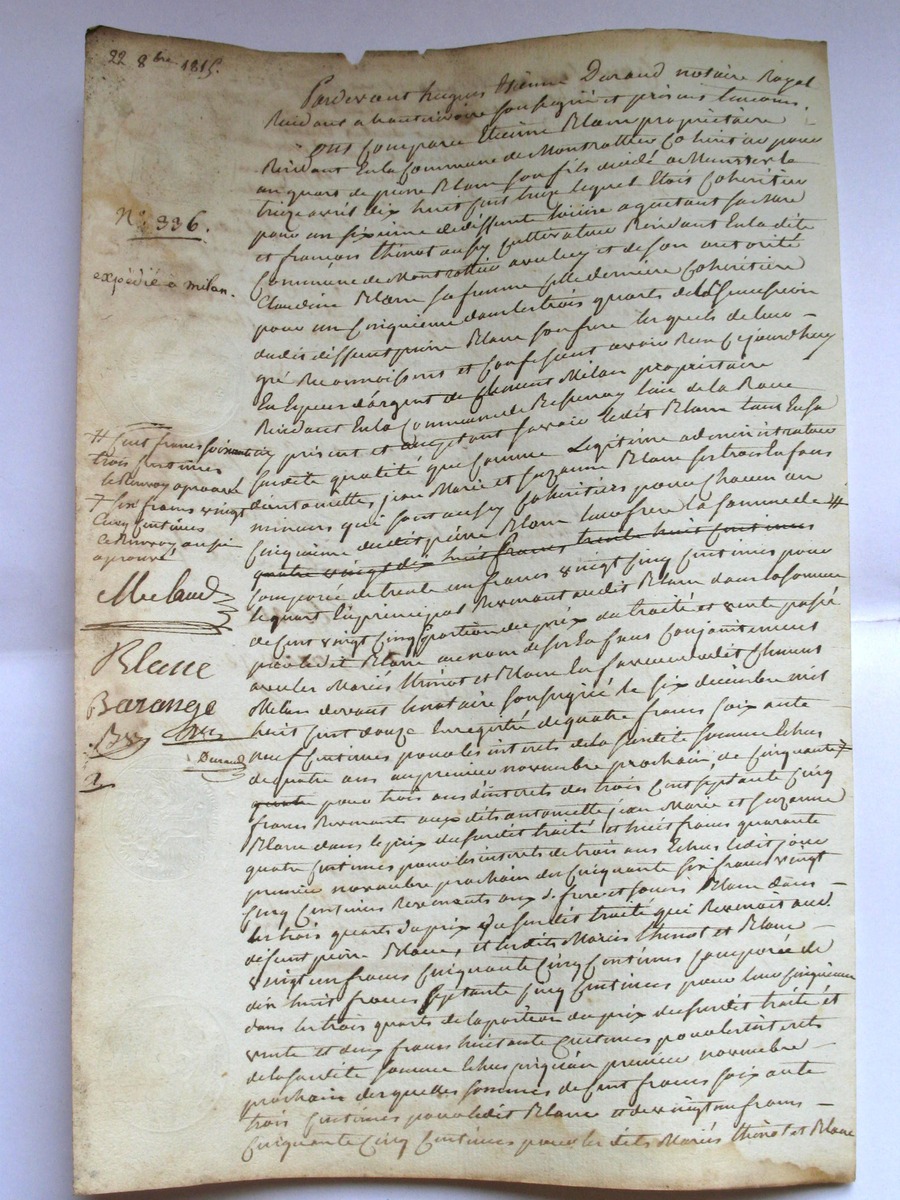 22 8bre 1815.
Pardevant hugues Etienne Durand notaire Royal
Résidant a soussigné et présens temoins.
Ont Comparu Etienne Blanc propriétaire
Résidant En la Commune de Montrottier Cohéritier pour
un quart de pierre Blanc son fils décédé a Munster le
treize avril dix huit cent treize lequel Etoit Cohéritier
pour un sixieme de déffunte sa mere
et françois thinot aussy Cultivateur Résidant En la dite
Commune de Montrottier avec luy et de son autorité
Claudine Blanc sa femme cette derniere Cohéritiere
pour un Cinquieme dans les trois quarts de la succession
dudit déffunt pierre Blanc son frere lesquels de leur
gré Reconnoissent et Confessent avoir Reçu Cejourdhuy
En Especes d'argent de Clement Milan propriétaire
Résidant En la Commune de Bessenay lieu de la Roue
ici présent et acceptant savoir ledit Blanc tant En sa
susdite qualité que Comme Légitime administrateur
d'antoinette, jean Marie et Suzanne Blanc ses trois Enfans
mineurs qui sont aussy Cohéritiers pour chacun un
Cinquieme dudit pierre Blanc leur frere la somme de #
quatre vingt dix huit francs trente huit Centimes
Composée de trente un francs vingt Cinq Centimes pour
le quart En principal Revenant audit Blanc dans la somme
de Cent vingt Cinq portion du prix du traité et vente passé
par ledit Blanc au nom de ses Enfans Conjointement
avec les Mariés thinot et Blanc En faveur dudit Clement
Milan devant le notaire soussigné le six décembre mil
huit Cent douze Enregistré de quatre francs soixante
neuf Centimes pour les interets de la susdite somme Echus
de quatre ans au premier novembre prochain, de Cinquante
pour trois ans d'interets des trois Cent septante Cinq
francs Revenants auxdits antoinette jean Marie et Suzanne
Blanc dans le prix du susdit traité et huit francs quarante
quatre Centimes pour les interets de trois ans Echus ledit jour
premier novembre prochain des Cinquante six francs vingt
Cinq Centimes Revenants aux d. frere et soeurs Blanc dans
les trois quarts du prix du susdit traité qui Revenoit aud.
défunt pierre Blanc, et lesdits Mariés thinot et Blanc
vingt un francs Cinquante Cinq Centimes Composée de
dix huit francs septante Cinq Centimes pour leur Cinquieme
dans les trois quarts de la portion du prix du susdit traité et
vente et deux francs huitante Centimes pour les interets
de la susdite somme Echus jusqu'au premier novembre
prochain desquelles sommes de Cent francs soixante
trois Centimes pour ledit Blanc et de vingt un francs
Cinquante Cinq Centimes pour les dits Mariés thinot et Blanc
N° 336.
expédié à milan.
# Cent francs soixante
trois Centimes
le Renvoy aprouvé
+ six francs vingt
Cinq Centimes
ce Renvoy aussi
aprouvé
Blanc
Barange
Durand